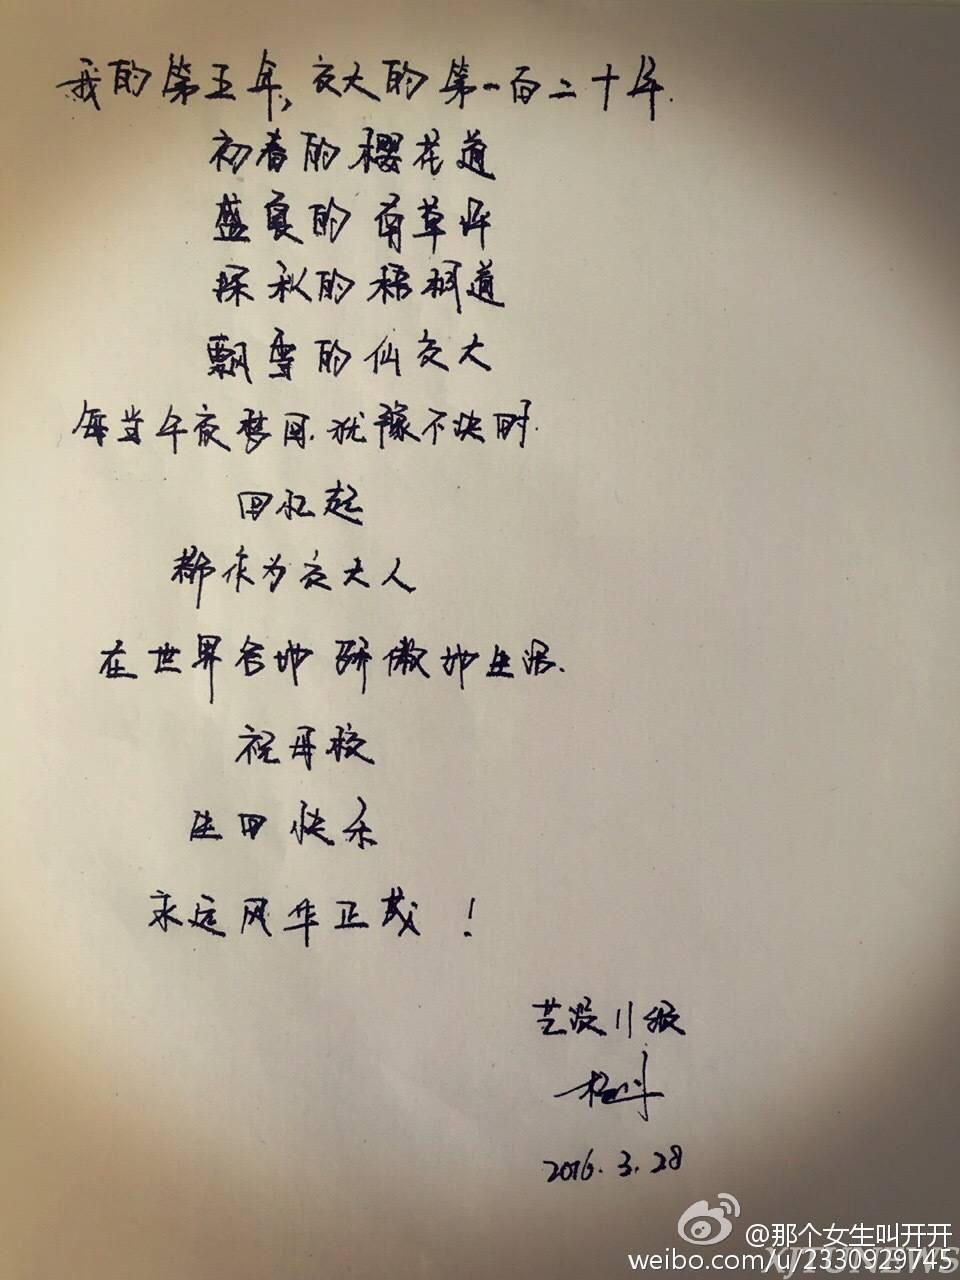 我的第五年，交大的第一百二十年.
初春的樱花道
盛夏的南草坪
深秋的梧桐道
飘雪的仙交大
每当午夜梦回.犹豫不决时.
回忆起
都作为交大人
在世界各地骄傲地生活.
祝母校
生日快乐
永远风华正茂！
艺设11级
2016.3.28
@那个女生叫开开
weibo.com/u/2330929745
XJTUNEWS